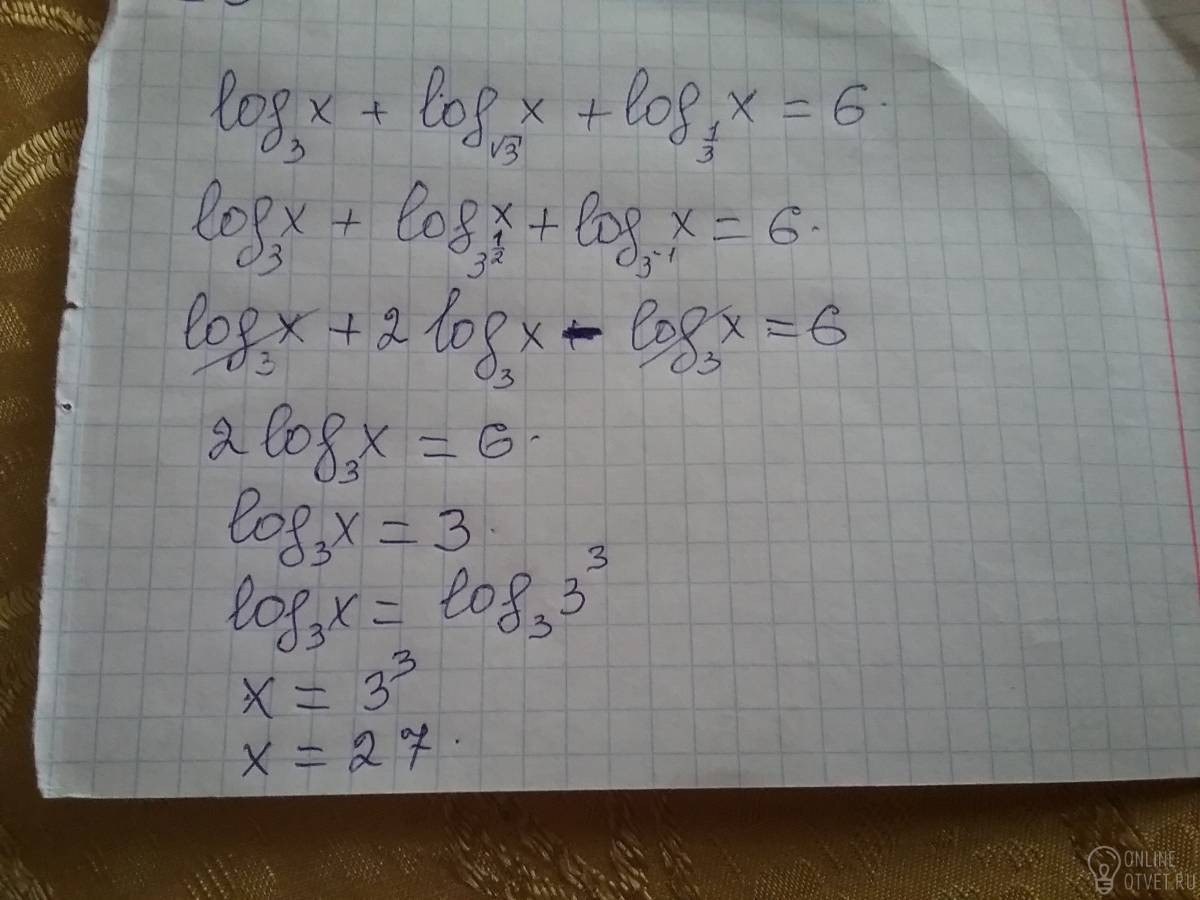 log₃x + log_√3 x + log_1/3 x = 6.
log₃x + log_3^1/2 x + log_3^-1 x = 6.
log₃x + 2 log₃x - log₃x = 6
2 log₃x = 6.
log₃x = 3.
log₃x = log₃3³
x = 3³
x = 27.
ONLINE
OTVET.RU